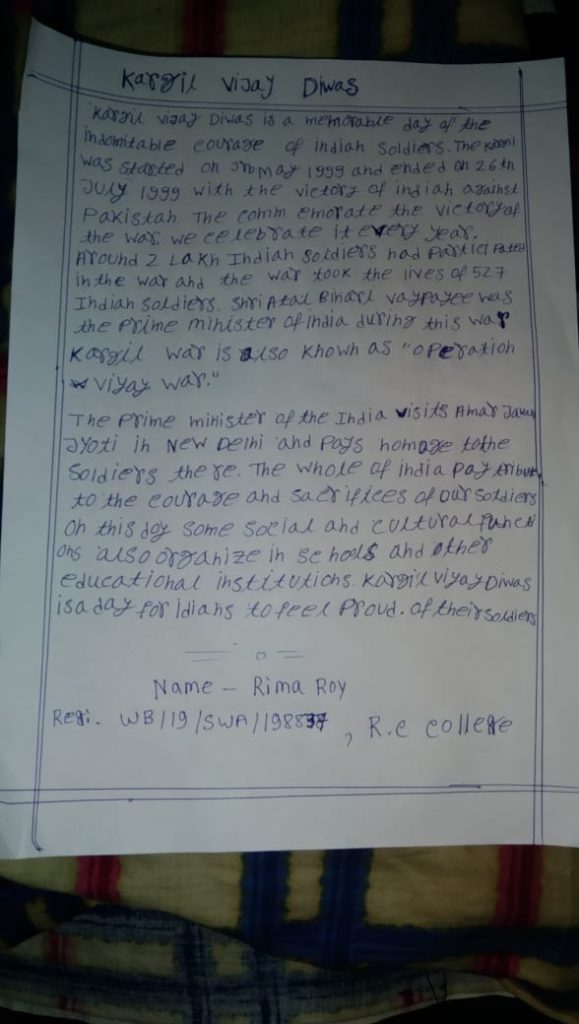 Kargil Vijay Diwas
Kargil vijay Diwas is a memorable day of the
indomitable courage of indian Soldiers. The Kargil
was started on 3rd may 1999 and ended on 26th
July 1999 with the victory of indian against
Pakistan. The comm emorate the victory of
the war, we celebrate it every year.
Around 2 Lakh Indian soldiers had Participated
in the war and the war took the lives of 527
Indian soldiers. Shri Atal Bihari Vajpayee was
the Prime minister of india during this war
Kargil war is also known as "operation
vijay war."
The Prime minister of the India visits Amar Jawan
Jyoti in New Delhi and Pays homage to the
Soldiers there. The whole of india pay tribute
to the courage and sacrifices of our soldiers
on this day some social and cultural functi
ons also organize in schools and other
educational institutions. Kargil vijay Diwas
is a day for idians to feel Proud. of their soldiers
Name - Rima Roy
Regi. WB/19/SWA/198837, R.C College